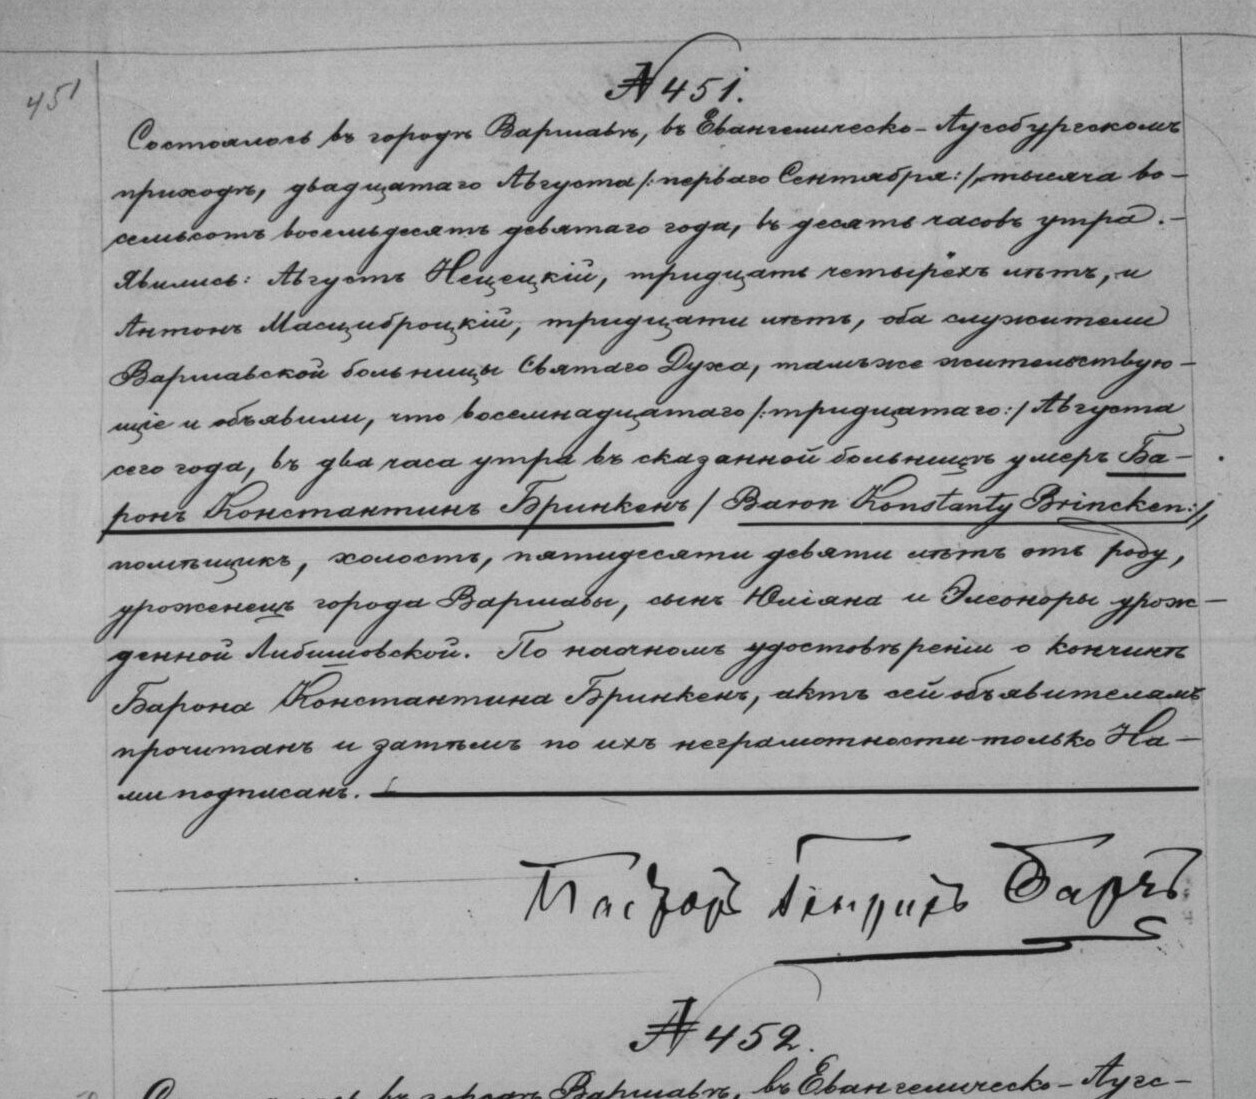 451
№ 451.
Состоялось въ городѣ Варшавѣ, въ Евангелическо-Аугсбургскомъ
приходѣ, двадцатаго Августа /:перваго Сентября:/, тысяча во-
семьсотъ восемьдесятъ девятаго года, въ десять часовъ утра. -
Явились: Августъ Нецецкій, тридцать четырёхъ лѣтъ, и
Антонъ Масциброцкій, тридцати лѣтъ, оба служители
Варшавской больницы Святаго Духа, тамъже жительствую-
щіе и объявили, что восемнадцатаго /:тридцатаго:/ Августа
сего года, въ два часа утра въ сказанной больницѣ умеръ Ба-
ронъ Константинъ Бринкенъ / Baron Konstanty Brincken:/,
помѣщикъ, холостъ, пятидесяти девяти лѣтъ отъ роду,
уроженецъ города Варшавы, сынъ Юліяна и Элеоноры урож-
денной Либишовской. По наочномъ удостовѣреніи о кончинѣ
Барона Константина Бринкенъ, актъ сей объявителямъ
прочитанъ и затѣмъ по ихъ неграмотности только На-
ми подписанъ.
Пасторъ Генрихъ Барчъ
№ 452.
въ городѣ Варшавѣ, въ Евангелическо-Аугс-